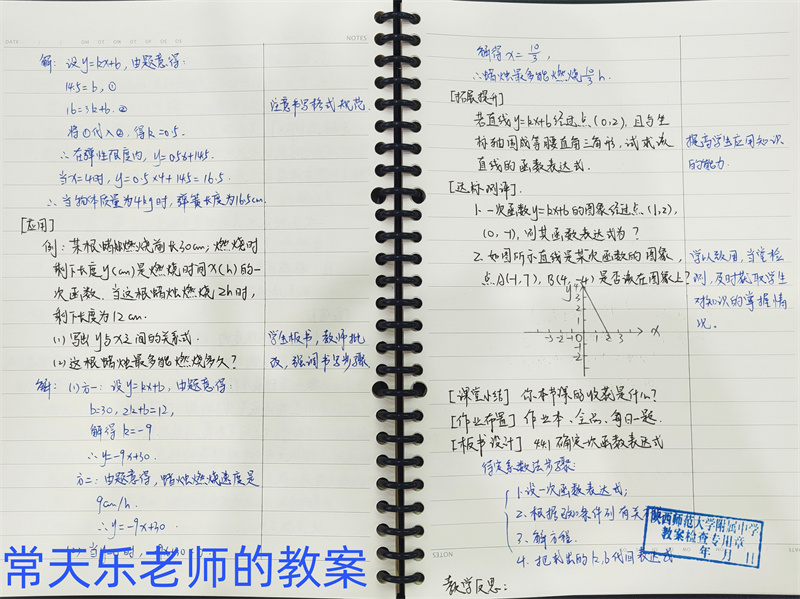 解：设y=kx+b，由题意得：
14.5=b，①
16=3k+b. ②
将①代入②，得k=0.5.
∴在弹性限度内，y=0.5x+14.5.
当x=4时，y=0.5×4+14.5=16.5.
∴当物体质量为4kg时，弹簧长度为16.5cm.
注意书写格式规范.
[应用]
例：某根蜡烛燃烧前长30cm，燃烧时
剩下长度y(cm)是燃烧时间x(h)的一
次函数. 当这根蜡烛燃烧2h时，
剩下长度为12cm.
(1)写出y与x之间的关系式.
(2)这根蜡烛最多能燃烧多久？
学生板书，教师批
改，强调书写步骤
解：(1)方一：设y=kx+b，由题意得：
b=30，2k+b=12，
解得k=-9
∴y=-9x+30.
方二：由题意得，蜡烛燃烧速度是
9cm/h.
∴y=-9x+30.
解得x=10/3，
∴蜡烛最多能燃烧10/3h.
[拓展提升]
若直线y=kx+b经过点(0,2)，且与坐
标轴围成等腰直角三角形，试求该
直线的函数表达式.
提高学生应用知识
的能力.
[达标测评]
1. 一次函数y=kx+b的图象经过点(1,2)，
(0,-1)，则其函数表达式为？
2. 如图所示直线是某次函数的图象，
点A(-1,7)，B(4,-4)是否该在图象上？
学以致用，当堂检
测，及时获取学生
对知识的掌握情
况.
y
4
3
2
1
-3 -2 -1 0 1 2 3 x
-1
-2
[课堂小结] 你本节课的收获是什么？
[作业布置] 作业本、全品、每日一题.
[板书设计] 4.4.1 确定一次函数表达式
待定系数法步骤：
1. 设一次函数表达式；
2. 根据已知条件列有关
3. 解方程.
4. 把求出的k，b代回表达式
陕西师范大学附属中学
教案检查专用章
年 月 日
教学反思：
常天乐老师的教案
NOTES